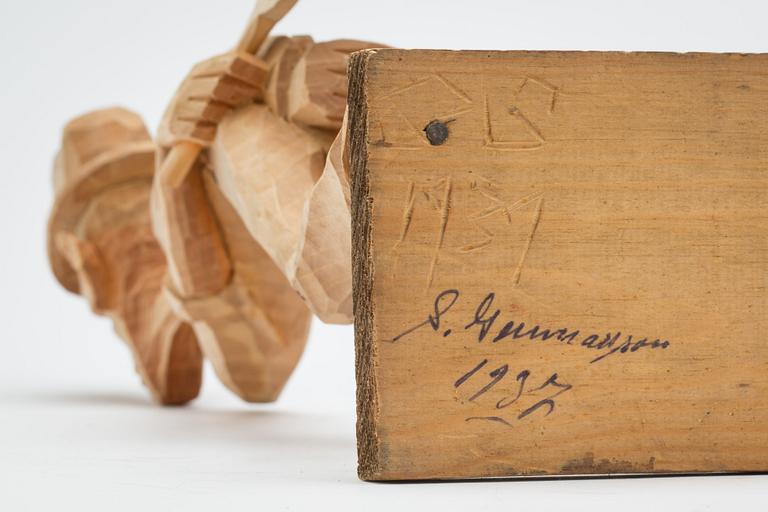 1937
S. Gunnarsson
1937